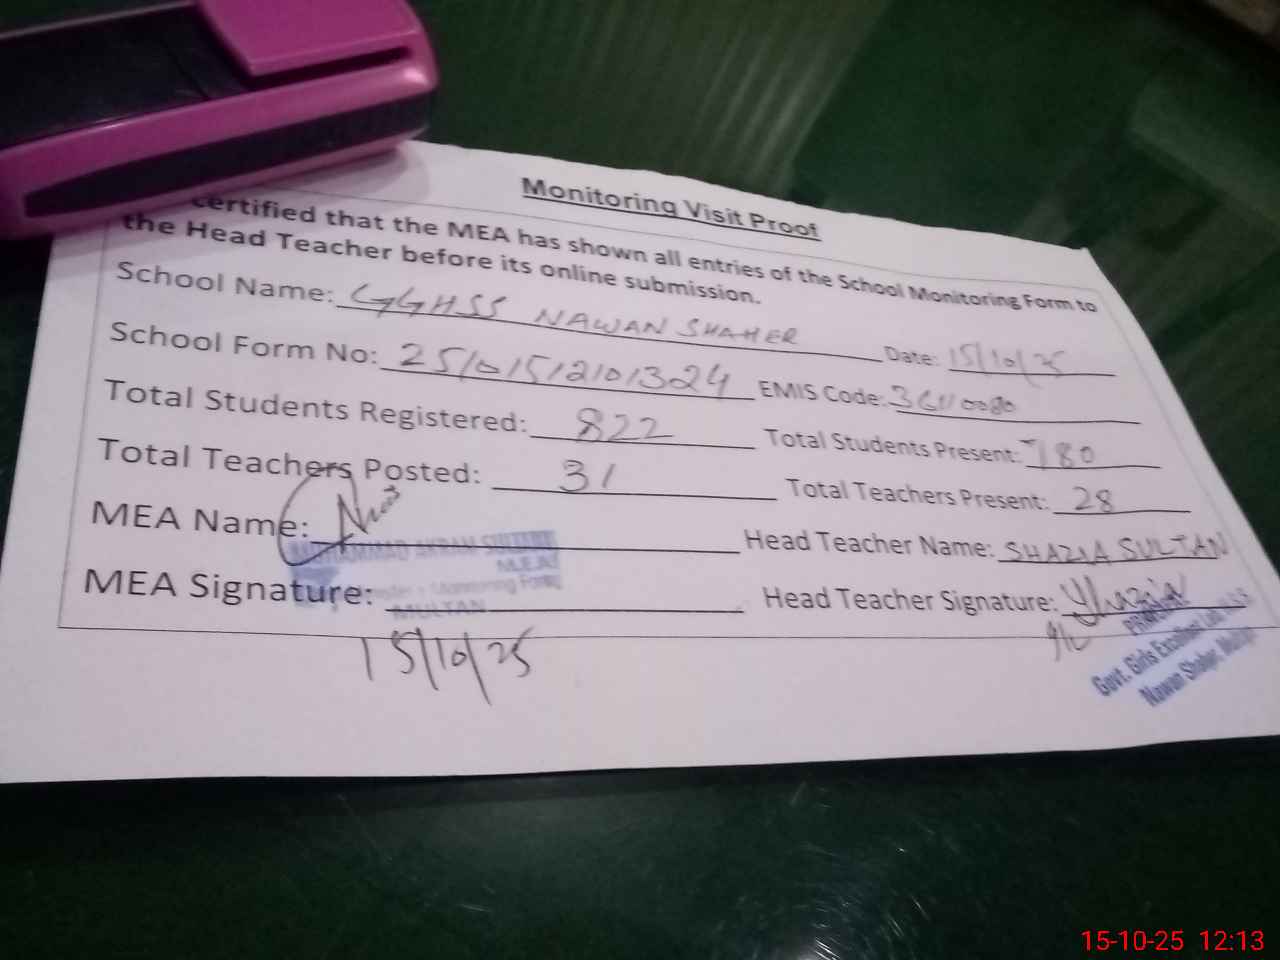 Monitoring Visit Proof
certified that the MEA has shown all entries of the School Monitoring Form to
the Head Teacher before its online submission.
School Name: GGHSS NAWAN SHAHER Date: 15/10/25
School Form No: 251015121013024 EMIS Code: 36110080
Total Students Registered: 822 Total Students Present: 780
Total Teachers Posted: 31 Total Teachers Present: 28
MEA Name: Head Teacher Name: SHAZIA SULTAN
MUHAMMAD AKRAM
M.E.A
MEA Signature: Head Teacher Signature: Shazia
Monitoring Force
MULTAN
15/10/25
Govt. Girls
Nawan Shaher, Multan
15-10-25 12:13